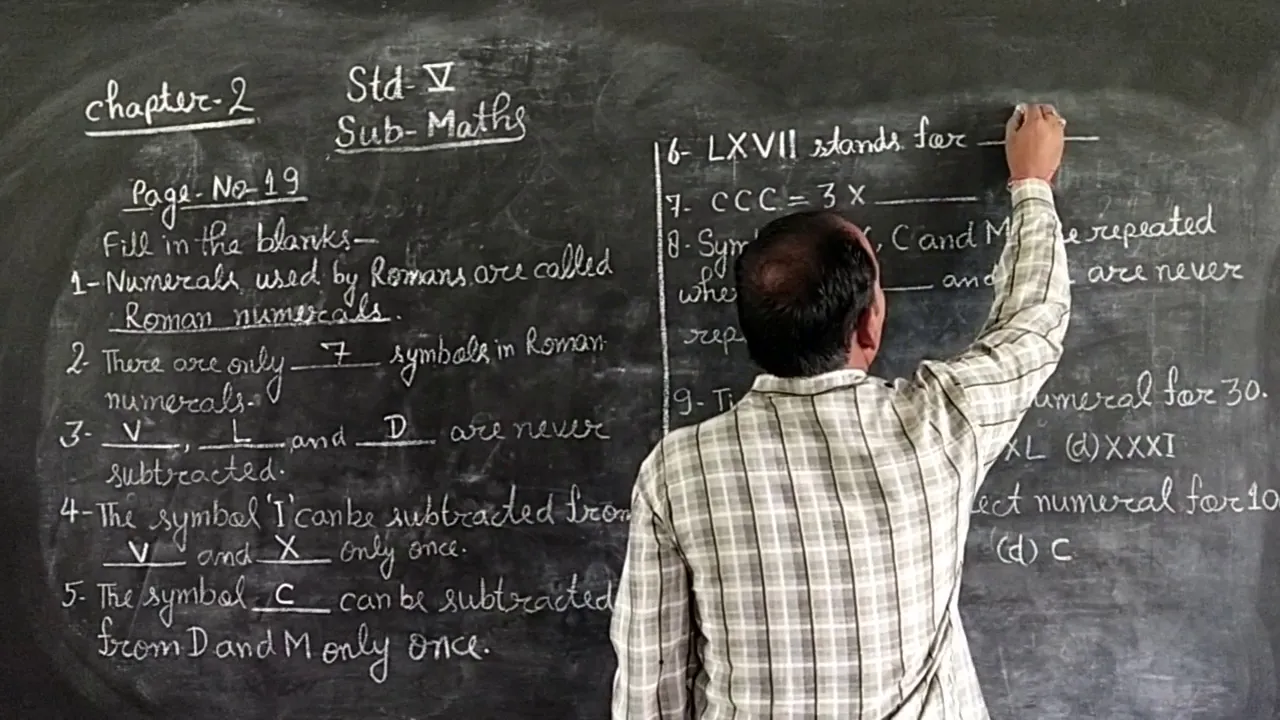 chapter-2
Std-V
Sub-Maths
Page-No-19
Fill in the blanks-
1-Numerals used by Romans are called
Roman numerals.
2-There are only 7 symbols in Roman
numerals.
3- V, L and D are never
subtracted.
4-The symbol 'I' can be subtracted from
V and X only once.
5-The symbol C can be subtracted
from D and M only once.
6- LXVII stands for
7- CCC = 3 X
8- C and M repeated
and are never
9-
numeral for 30.
XL (d) XXXI
numeral for 10
(d) C